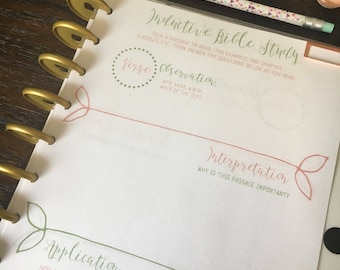 Inductive Bible Study
PICK A PASSAGE TO READ, FOR EXAMPLE, ONE CHAPTER,
THEN ANSWER THE QUESTIONS BELOW AS YOU READ.
Verse
Observation:
WHO, WHAT, WHEN,
WHERE OF THE TEXT.
Interpretation
WHY IS THIS PASSAGE IMPORTANT?
Application